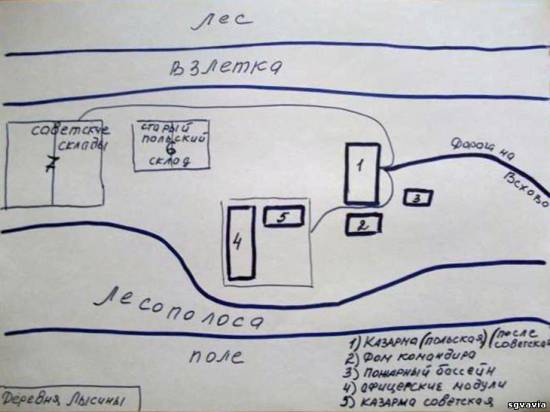 Лес
Взлетка
советские
склады
7
старый
польский
6
склад
1
Дорога на
Всхово
3
2
5
4
Лесополоса
поле
1) Казарма (польская) (после
советская
2) Дом командира
3) Пожарный бассейн
4) Офицерские модули
5) Казарма советская
Деревня Лысины
sgvavia